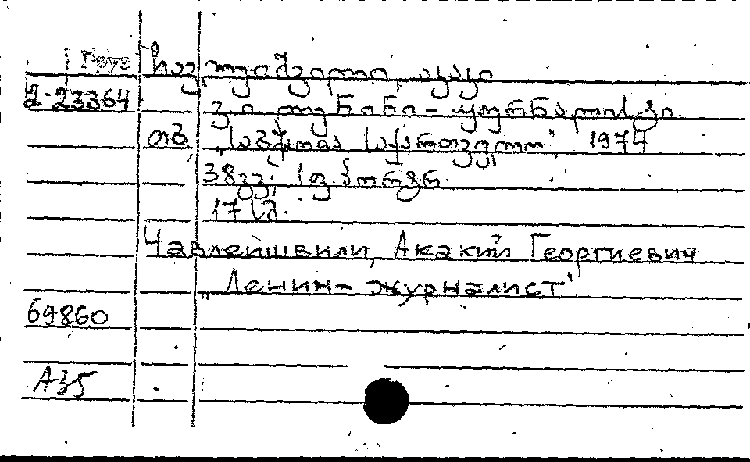 Груз ჩავლეიშვილი, აკაკი
2-23364 ვ. ი. ლენინი - ჟურნალისტი
თბ. „საბჭოთა საქართველო", 1974
38 გვ., 1 ფ. პორტრ.
17 სმ.
Чавлейшвили, Акакий Георгиевич
„Ленин - журналист"
69860
А35